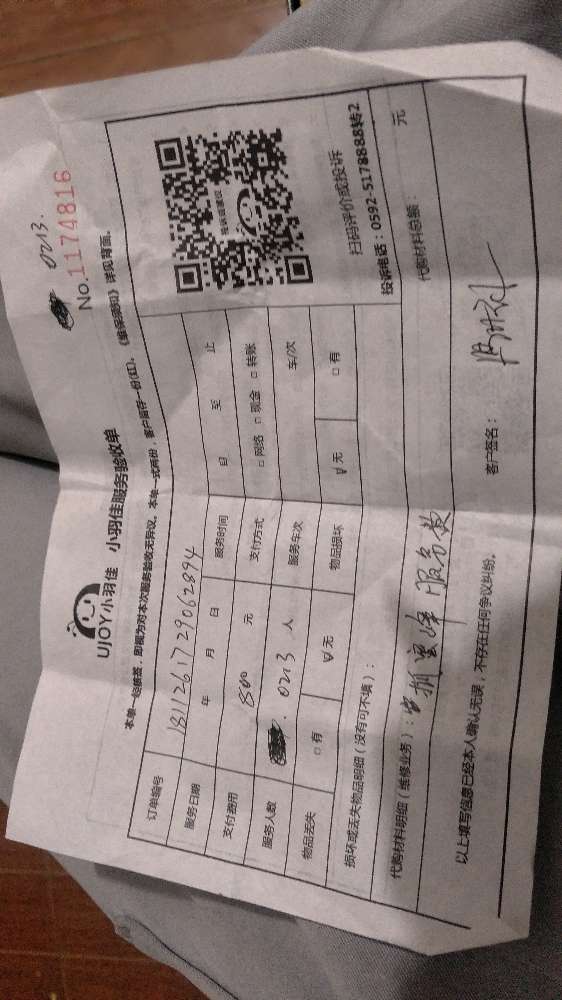 0213.
No.1174816
UJOY小羽佳 小羽佳服务验收单
本单一经签署，即视为对本次服务验收无异议。本单一式两份，客户留存一份(红)。《维保须知》详见背面。
订单编号 181126172906289 4
服务日期 年 月 日 服务时间 自 至 止
支付费用 800 元 支付方式 □网络 □现金 □转账
服务人数 0213 人 服务车次 车/次
物品丢失 □有 ☑无 物品损坏 ☑无 □有
投诉或建议
扫码评价或投诉
投诉电话：0592-5178888转2
损坏或丢失物品明细（没有可不填）：
代购材料明细（维修业务）： 服务款
代购材料总额： 元
以上填写信息已经本人确认无误，不存在任何争议纠纷。
客户签名：